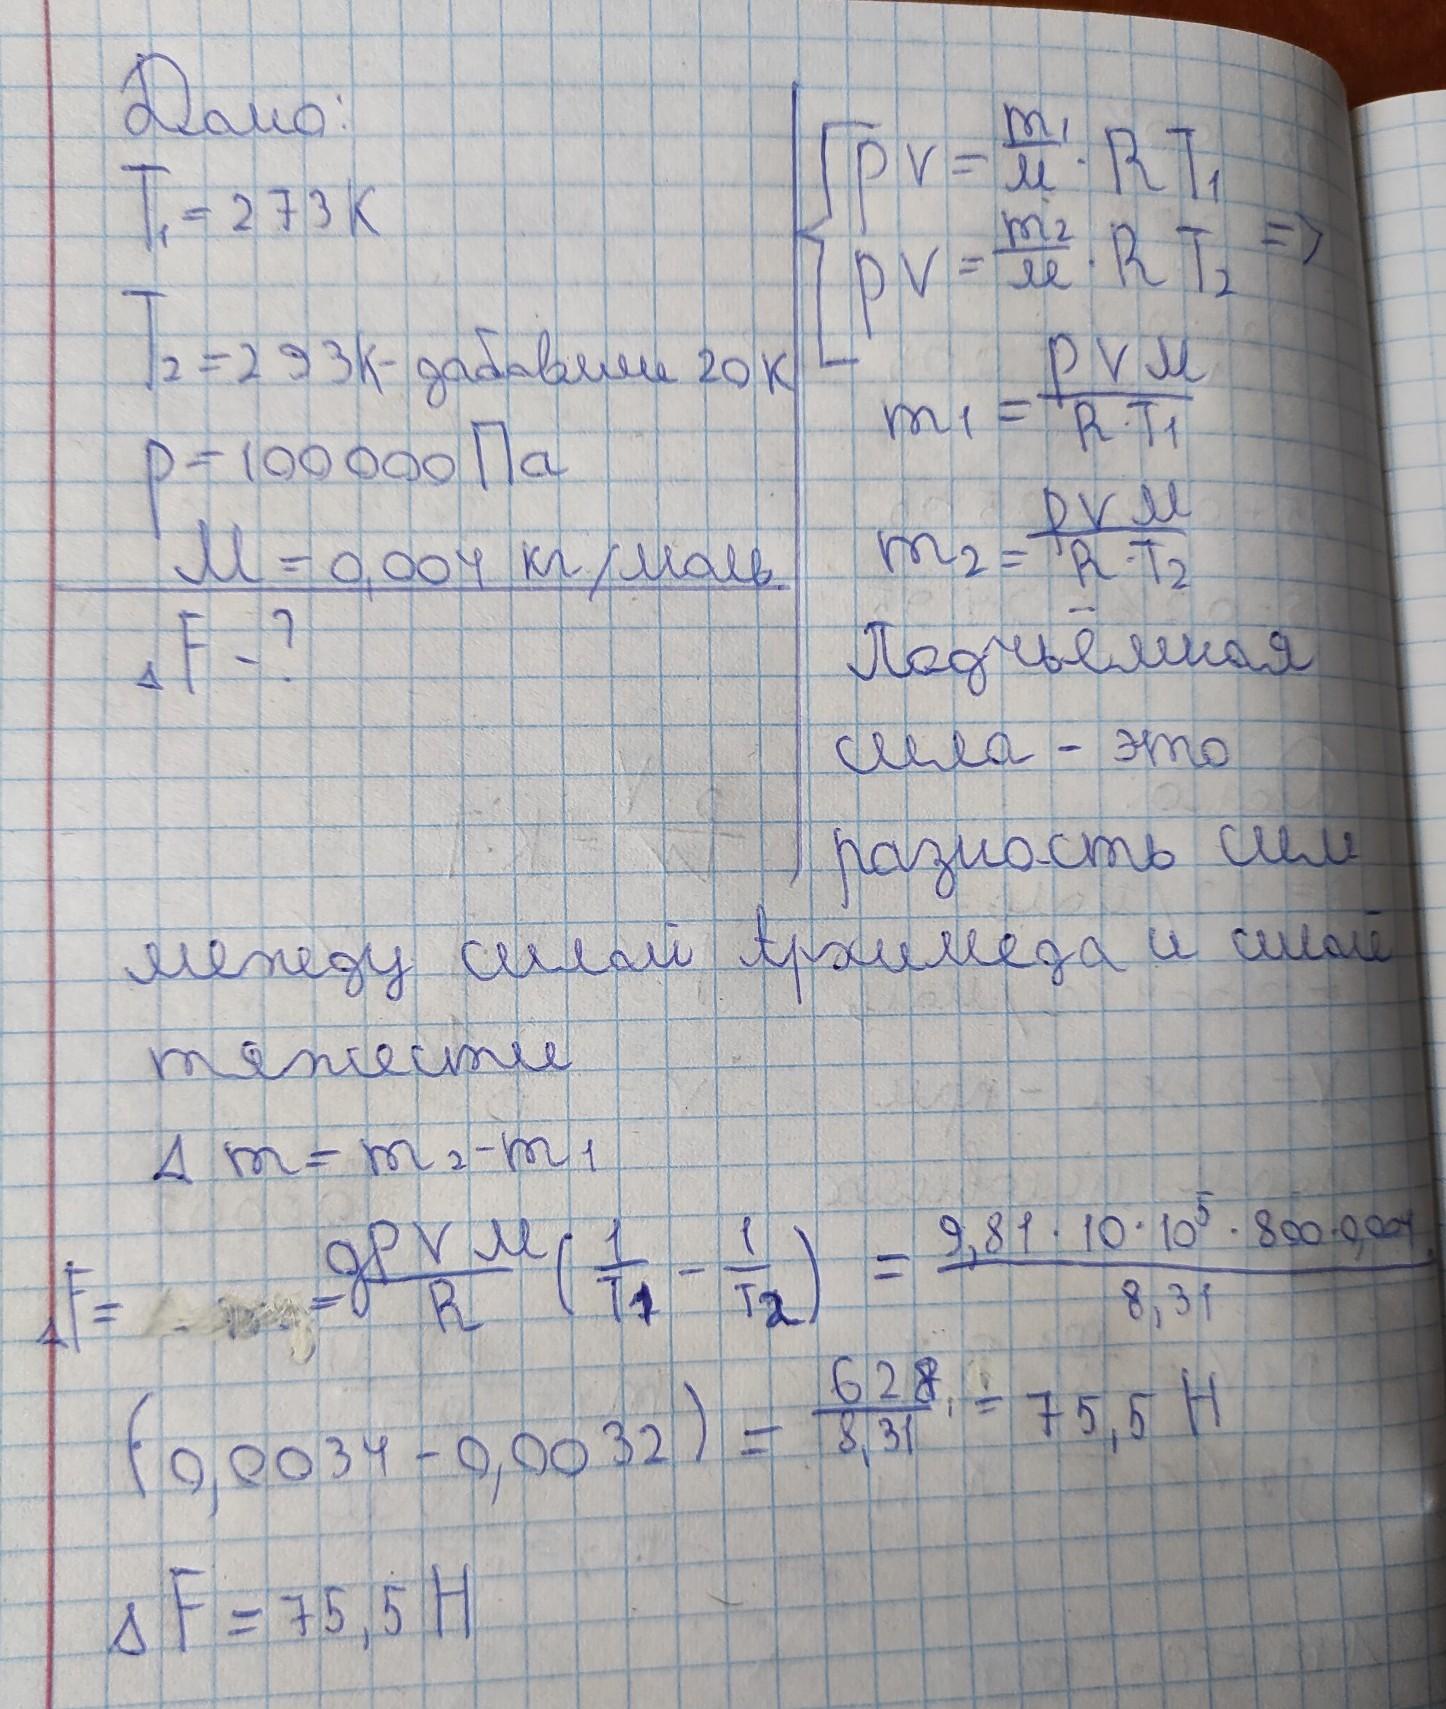 Дано:
T₁ = 273 К
T₂ = 293К - дабавили 20 К
p = 100 000 Па
M = 0,004 кг/моль
ΔF - ?
pV = m₁/M · R T₁
pV = m₂/M · R T₂ =>
m₁ = pVM/R·T₁
m₂ = pVM/R·T₂
Подчьёмная
сила - это
разность сил
между силой Архимеда и силой
тяжести
Δm = m₂ - m₁
ΔF = = gpVM/R (1/T₁ - 1/T₂) = 9,81·10·10⁵·800·0,004/8,31
(0,0034 - 0,0032) = 628/8,31 = 75,5 Н
ΔF = 75,5 Н